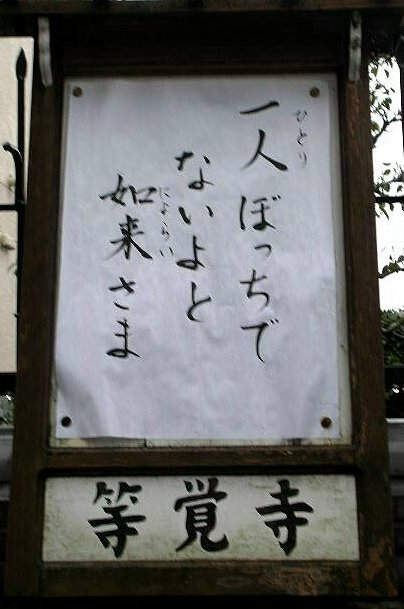 一人ぼっちで
ひとり
ないよと
如来さま
にょらい
等覚寺